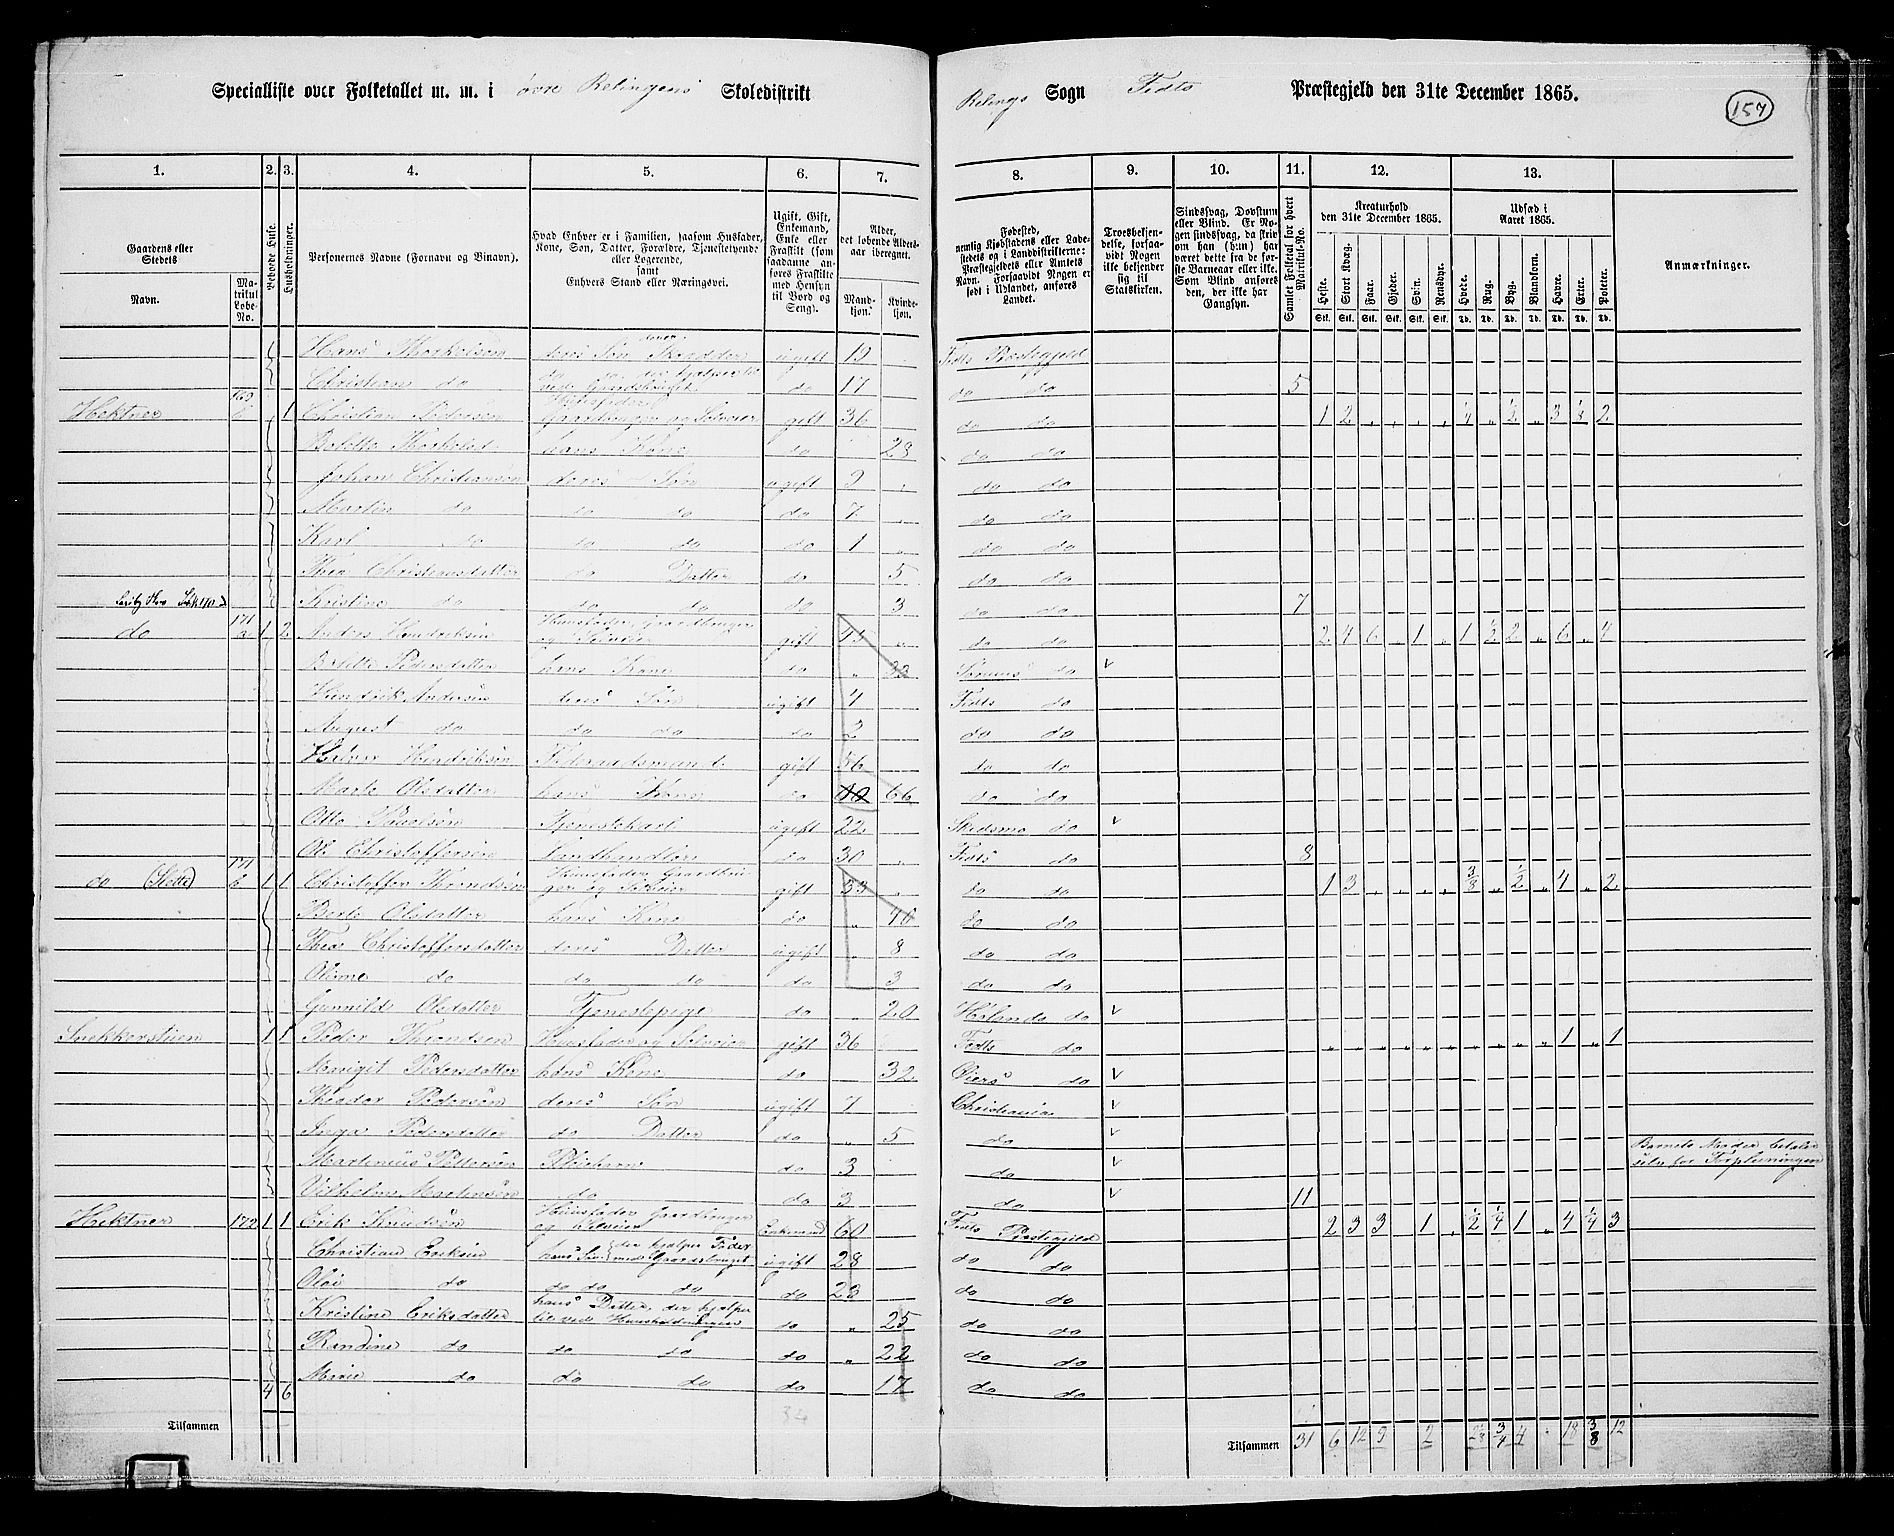 Specialliste over Folketallet m. m. i øvre Relingens Skoledistrikt
Relings Sogn Fedts Præstegjeld den 31te December 1865.
157
1. 2. 3. 4. 5. 6. 7. 8. 9. 10. 11. 12. 13.
Gaardens eller Stedets
Navn.
Matrikul Løbe-No.
Beboede Huse.
Husholdninger.
Personernes Navne (Fornavn og Binavn).
Hvad Enhver er i Familien, saasom Husfader, Kone, Søn, Datter, Forældre, Tjenestetyende eller Logerende,
samt
Enhvers Stand eller Næringsvei.
Ugift, Gift, Enkemand, Enke eller Fraskilt (som saadanne anføres Fraskilte med Hensyn til Bord og Seng).
Alder, det løbende Aldersaar iberegnet.
Mandkjøn.
Kvindekjøn.
Fødested, nemlig Kjøbstadens eller Ladestedets og i Landdistrikterne: Præstegjeldets eller Amtets Navn. Forsaavidt Nogen er født i Udlandet, anføres Landet.
Troesbekjendelse, forsaavidt Nogen ikke bekjender sig til Statskirken.
Sindssvag, Døvstum eller Blind. Er Nogen sindssvag, da skrives om han (hun) har været dette fra de første Barneaar eller ikke. Som Blind anføres den, der ikke har Gangsyn.
Samlet Folketal for hvert Matrikul-No.
Kreaturhold den 31te December 1865.
Heste. Stort Kvæg. Faar. Gjeder. Svin. Rensdyr.
Stk. Stk. Stk. Stk. Stk. Stk.
Udsæd i Aaret 1865.
Hvede. Rug. Byg. Blandkorn. Havre. Erter. Poteter.
Td. Td. Td. Td. Td. Td. Td.
Anmærkninger.
Hans Thorkelsen deres Søn ugift 19 Fedts Præstegjeld
Christian do do do der hjælper til ved Gaardsbruget do 17 do do 5
Hektner 169 b 1 Christian Pedersen Huusfader Gaardbruger og Selveier gift 36 do do 1 2 „ „ „ „ 1/4 „ 1/2 „ 3 1/8 2
Thorkelsd. hans Kone do 28 do do
Johan Christiansen deres Søn ugift 9 „ do do
Martin do do do do 7 „ do do
Karl do do do do 1 „ do do
Thea Christiansdatter do Datter do 5 do do
Kristine do do do do 3 do do 7
do 171 a 1 2 Anders Hendriksen Huusfader, Gaardbruger og Selveier gift 45 „ do do 2 4 6 „ 1 „ 1 1/2 2 „ 6 „ 4
Pedersdatter hans Kone do „ 33 Sørums do v
Hendrik Andersen deres Søn ugift 4 Fedts do
August do do do do 2 do do
Hendriksen Føderaadsmand gift 56 do do
Marte Olsdatter hans Kone do 66 do do
Otto Tjenestekarl ugift 22 „ Skedsmo do v
Ole Christoffersen Landhandler do 30 „ Fedts do 8
do (Slette) 171 b 1 1 Christoffer Throndsen Huusfader, Gaardbruger og Selveier gift 33 „ do do 1 3 „ „ „ „ 3/8 „ 1/2 „ 4 „ 2
Berte Olsdatter hans Kone do „ 40 do do
Thea Christoffersdatter deres Datter ugift „ 8 do do
do do do do 3 do do
Gunnild Olsdatter Tjenestepige do „ 20 Hølands do v
Snekkerstuen 1 1 Peder Throndsen Huusfader og Selveier gift 36 Fedts do „ „ „ „ „ „ „ „ „ „ 1 „ 1
Marigit Pedersdatter hans Kone do 32 Øiers do v
Theodor Pedersen deres Søn ugift 7 Christiania v
Inga Pedersdatter do Datter do „ 5 do v
Martinius Pettersen Pleiebarn do 3 do v Barnets Moder betaler selv for Forpleiningen
Vilhelm Martinsen do do 3 do v 11
Hektner 172 1 1 Erik Knudsen Huusfader Gaardbruger og Selveier Enkemand 60 Fedts Præstegjeld 2 3 3 „ 1 „ 1/2 1/4 1 „ 4 1/4 3
Christian Eriksen hans Søn der hjelper Fader med Gaardsbruget ugift 28 do do
do do do do do 23 do do
Kristine Eriksdatter hans Datter, der hjelper til ved Huusholdningen do „ 25 do do
Randine do do do do „ 22 do do
Marie do do do do 17 do do
4 6
Tilsammen 34
Tilsammen 31 6 12 9 2 3/4 4 18 3/8 12